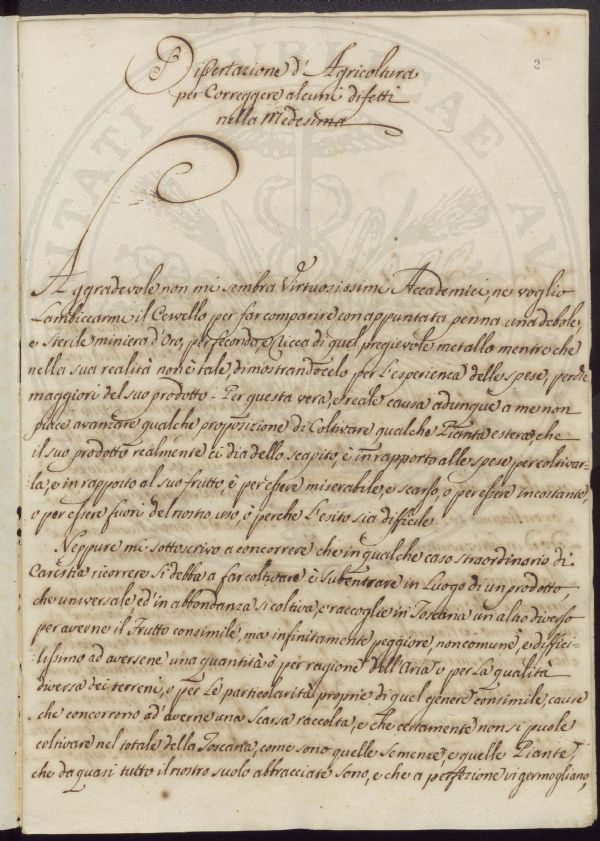 2
Dissertazione d'Agricoltura
per Correggere alcuni difetti
nella Medesima
Aggradevole non mi sembra Virtuosissimi Accademici, ne voglio
Lambiccarmi il Cervello per far comparire con appuntata penna una debole,
e Sterile miniera d'Oro, per feconda, e Ricca di quel pregievole metallo mentre che
nella sua realità non è tale, dimostrandocelo per l'esperienza delle spese, perchè
maggiori del suo prodotto. Per questa vera, e reale causa adunque a me non
piace avanzare qualche proposizione di Coltivare qualche Pianta estera, che
il suo prodotto realmente ci dia dello scapito, è in rapporto alle spese per coltivar-
la, e in rapporto al suo frutto, è per essere miserabile, e scarso, o per essere incostante,
o per essere fuori del nostro uso, ò perche l'esito sia difficile.
Neppure mi sottoscrivo a concorrere che in qualche caso straordinario di
Carestia ricorrere si debba a far coltivare è Subentrare in Luogo di un prodotto,
che universale, ed in abbondanza si coltiva, e raccoglie in Toscana un altro diverso
per averne il Frutto consimile, ma infinitamente peggiore, non comune, e diffici-
lissimo ad aversene una quantità ò per ragione dell'Aria, o per La qualità
diversa dei terreni, o per Le particolarità proprie di quel genere consimile, cause
che concorrono ad averne una Scarsa raccolta, e che certamente non si puole
coltivare nel totale della Toscana, come sono quelle Semenze, e quelle Piante,
che da quasi tutto il nostro suolo abbracciate sono, e che a perfezione vi germogliano,
PUBBLICAE